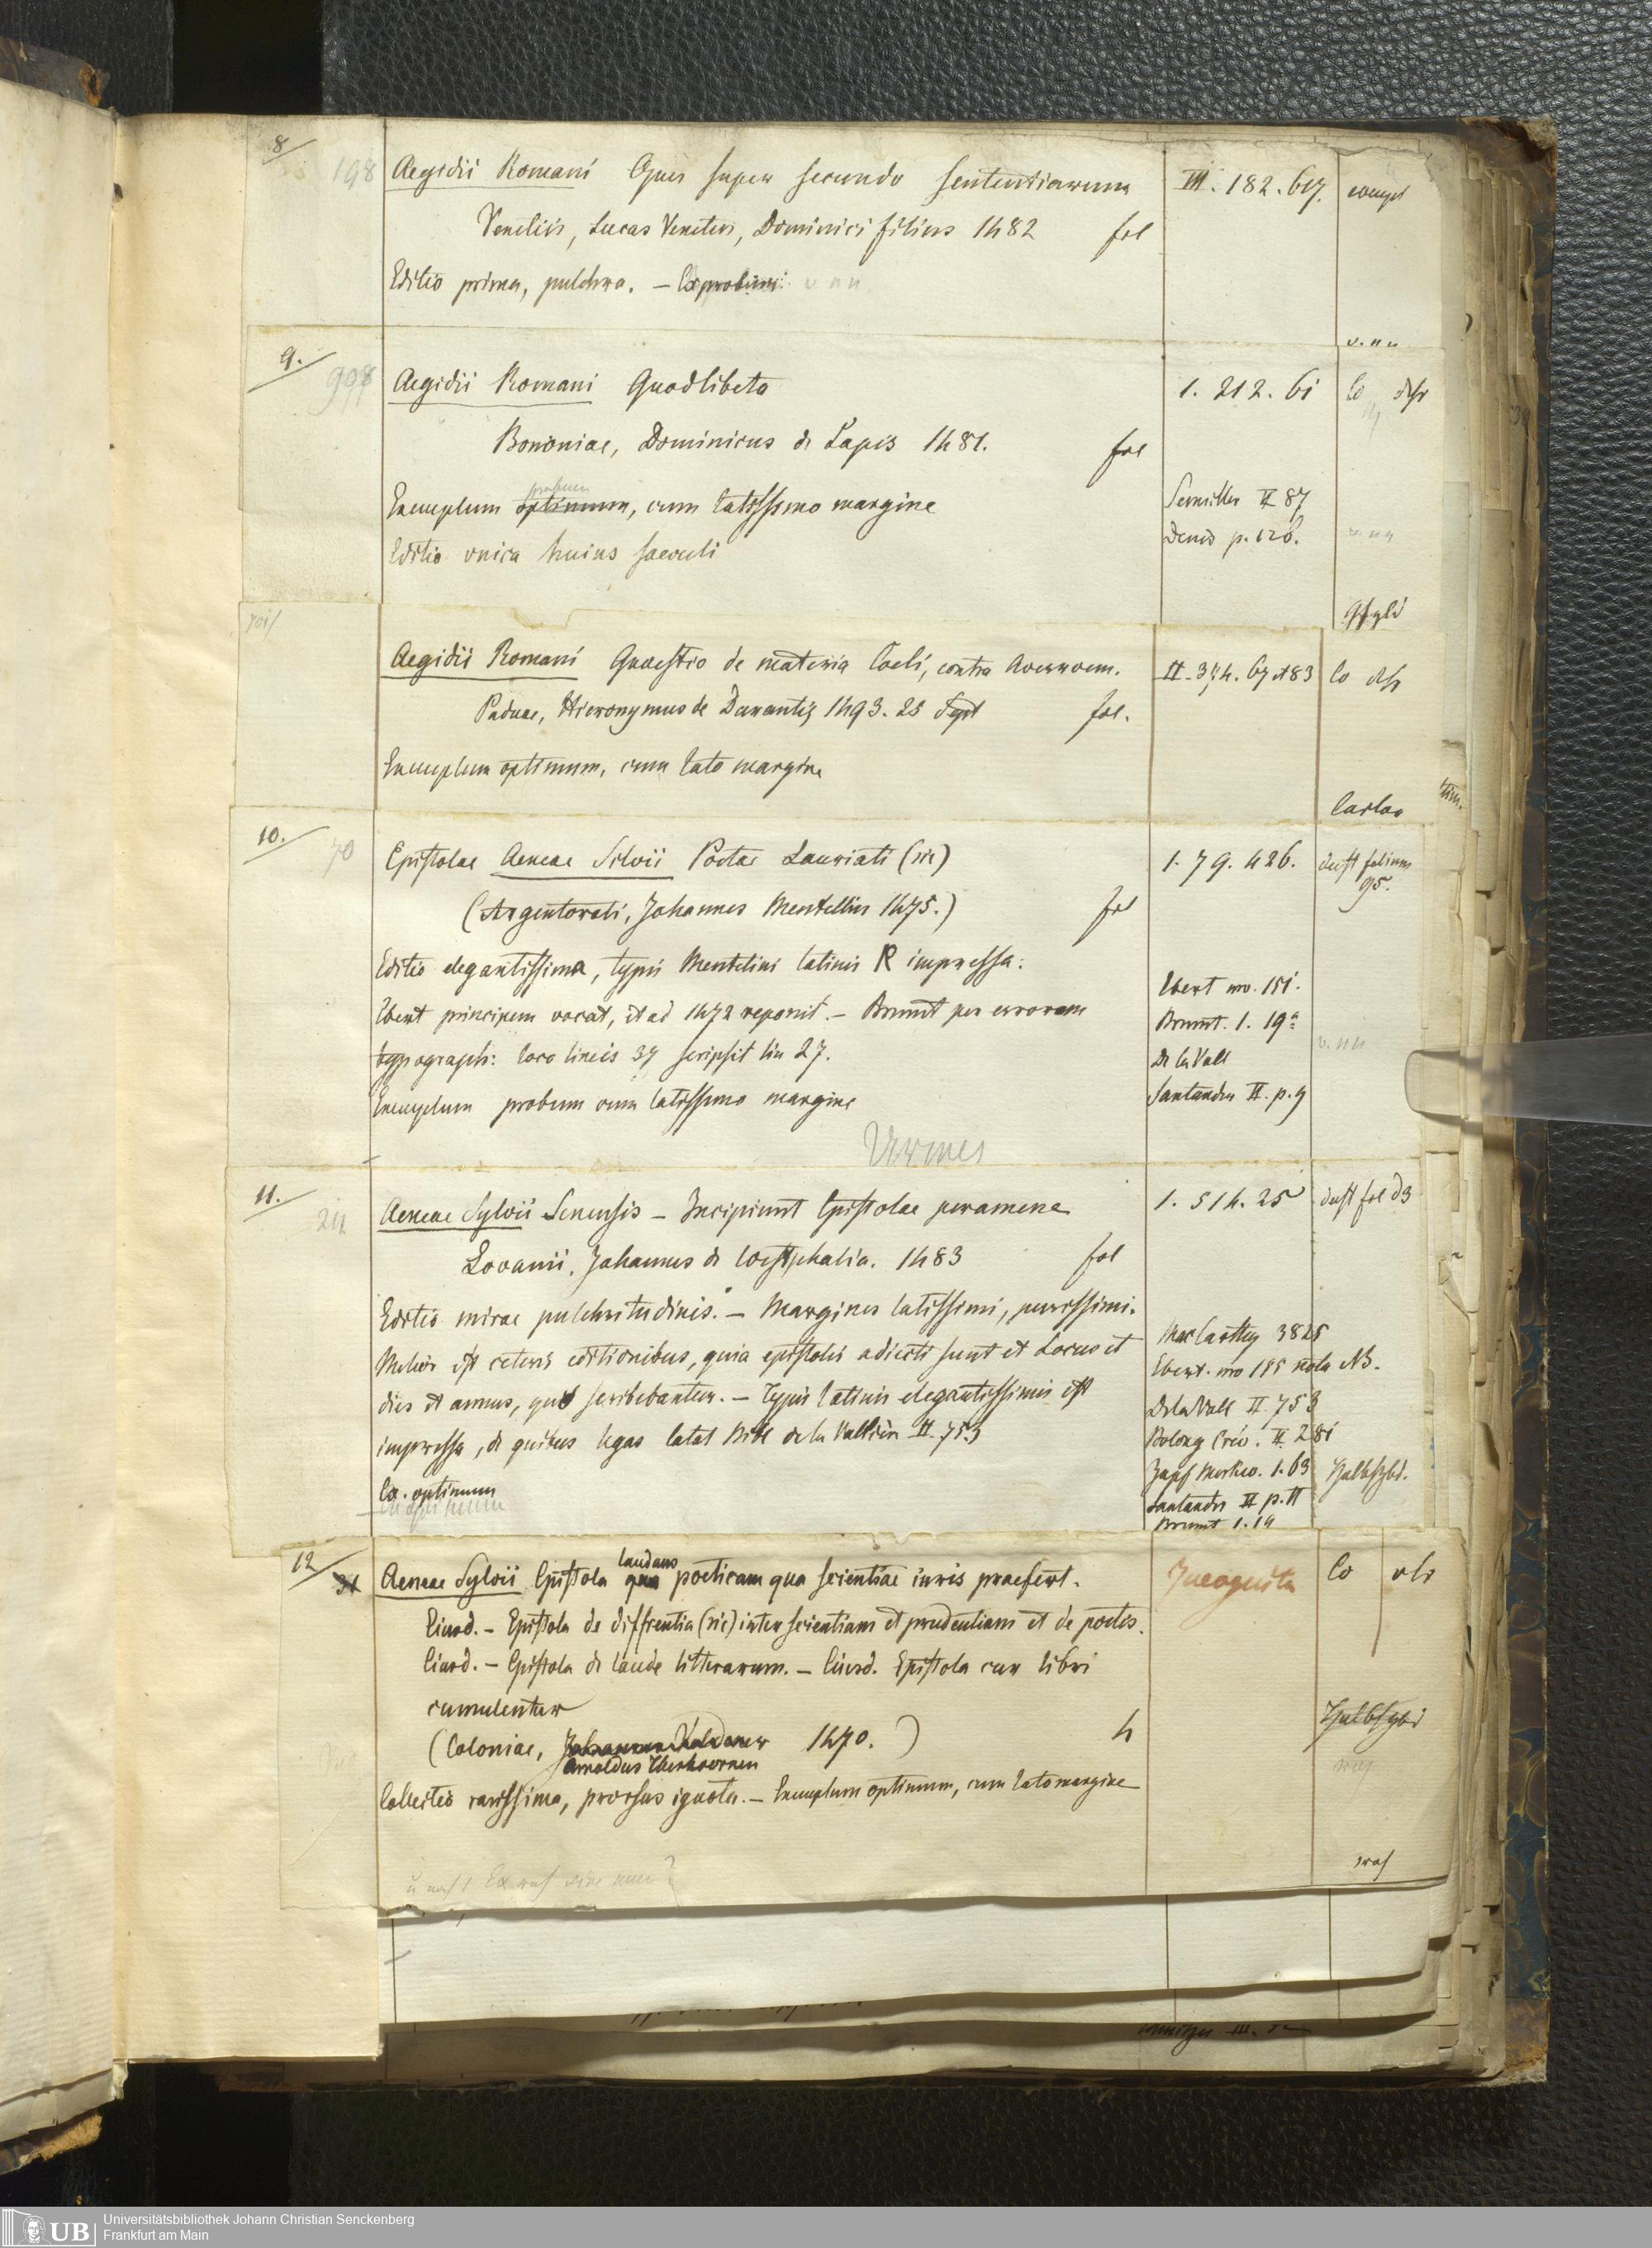 8 198 Aegidii Romani Opus super secundo sententiarum III. 182. 617. compl
Venetiis, Lucas Venetus, Dominici filius 1482 fol
Editio prima, pulchra. – Ex probum v. n n.
v. n n
9. 908 Aegidii Romani Quodlibeta 1. 212. 61 Co
Bononiae, Dominicus de Lapis 1481. fol
probum
Exemplum optimum, cum latissimo margine Semiller II 87
Editio unica huius saeculi Denis p. 126. v. n n
Aegidii Romani Quaestio de materia Coeli, contra Averroem. II. 374. 67 et 83 Co
Paduae, Hieronymus de Durantis 1493. 25 Sept fol.
Exemplum optimum, cum lato margine
10. 70 Epistolae Aeneae Silvii Poetae Lauriati (sic) 1. 79. 426. deest folium
95.
(Argentorati, Johannes Mentellin 1475.) fol
Editio elegantissima, typis Mentelini latinis R impressa. Ebert no. 151.
Ebert principem vocat, et ad 1472 reponit. – Brunet per errorem Brunet. 1. 19a
typograph: loco lineis 37 scripsit lin 27. De la Vall v. n n
Exemplum probum cum latissimo margine Santander II. p. 9
11. 24 Aeneae Sylvii Senensis – Incipiunt Epistolae peramene 1. 514. 25 deest fol d3
Lovanii, Johannes de Westphalia. 1483 fol
Editio mirae pulchritudinis. – Margines latissimi, purissimi. MacCarthy 3825
Melior est ceteris editionibus, quia epistolis adiecti sunt et Locus et Ebert. no 155 nota NB.
dies et annus, quo scribebantur. – Typis latinis elegantissimis est De la Vall II. 753
impressa, de quibus legas Catal Bibl de la Vallière II. 753 Bolong Crev. II. 281
Ex. optimum Zapf Merkw. 1. 63 Halbfzbd.
Santander II p. 11
Brunet 1. 19
12 31 Aeneae Sylvii Epistola qua laudans poeticam qua scientiae iuris praefert. Incognita Co
Eiusd. – Epistola de diffrentia (sic) inter scientiam et prudentiam et de poetis.
Eiusd. – Epistola de laude litterarum. – Eiusd. Epistola cur libri
cumulentur Halbfzbd
(Coloniae, Johannes Koldener 1470.) 4
Arnoldus Therhoernen
Collectio rarissima, prorsus ignota. – Exemplum optimum, cum lato margine
UB
Universitätsbibliothek Johann Christian Senckenberg
Frankfurt am Main